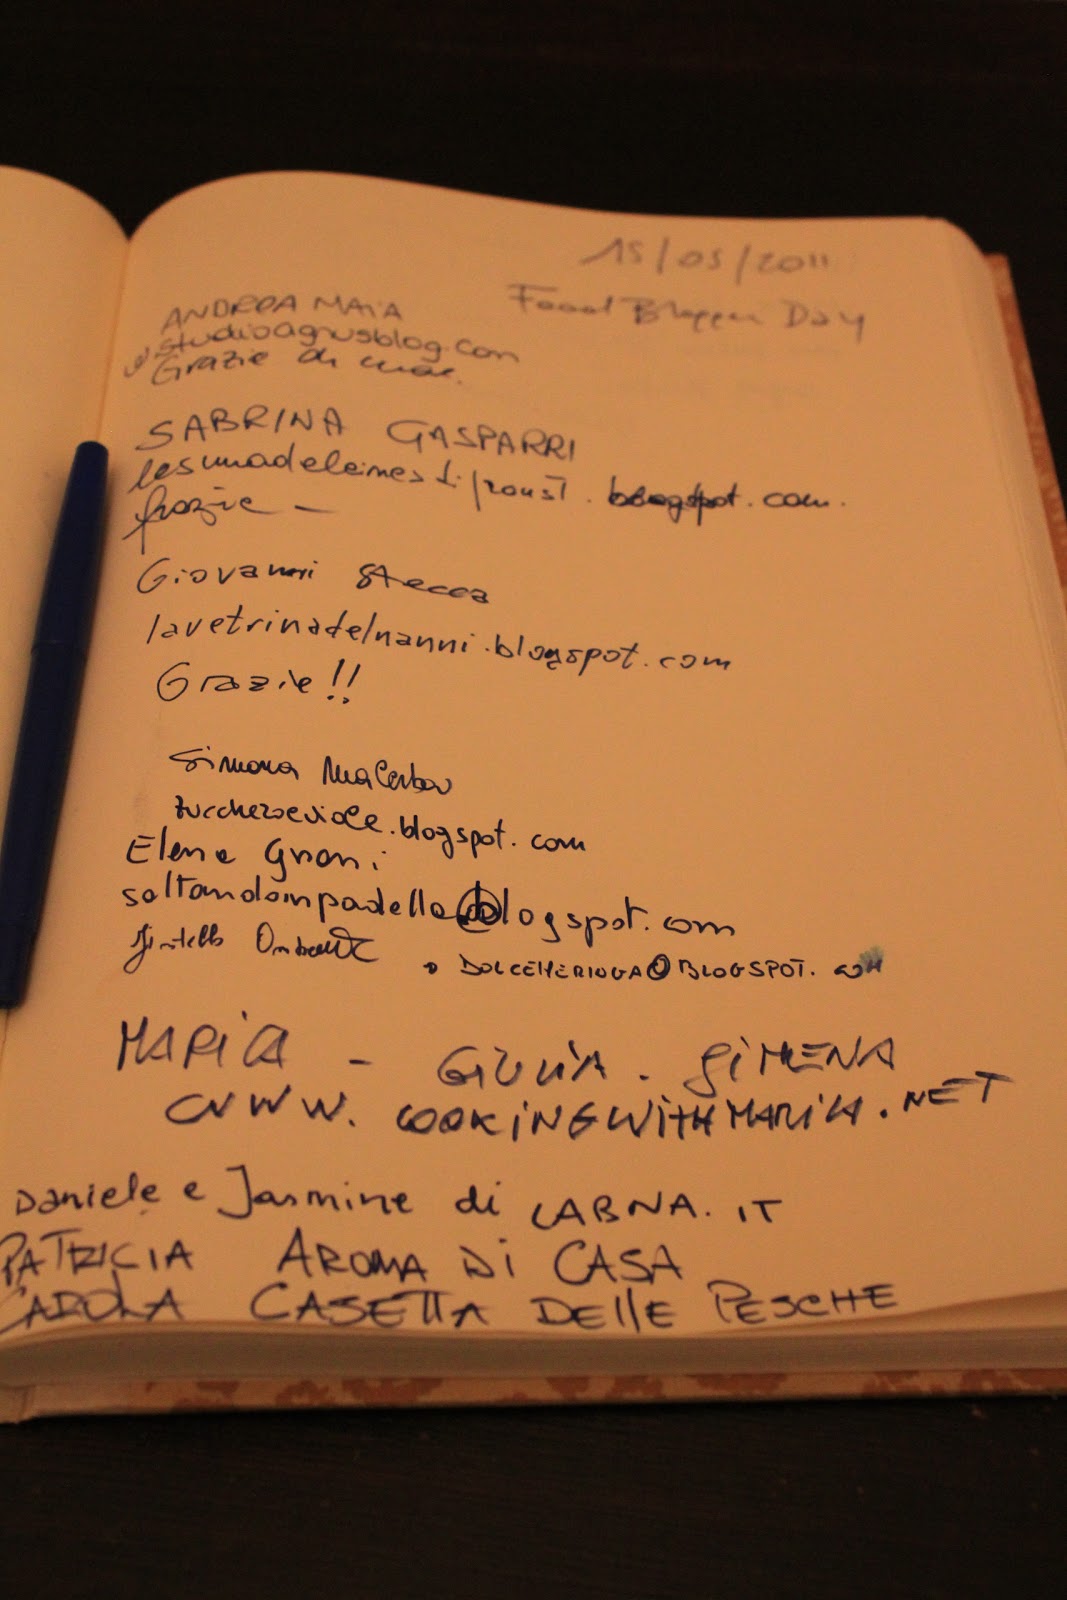 15/05/2011
Food Blogger Day
ANDREA MAIA
studioagnusblog.com
Grazie di cuore.
SABRINA GASPARRI
lesmadeleinesdiproust.blogspot.com.
Grazie -
Giovanni Stecca
lavetrinadelnanni.blogspot.com
Grazie!!
Simona Malerba
zuccheroeviole.blogspot.com
Elena
saltandoinpadella@blogspot.com
DOLCEMERINGA@BLOGSPOT.COM
MARICA - GIULIA. SIMENA
WWW.COOKINGWITHMARICA.NET
Daniele e Jasmine di LABNA.IT
PATRICIA AROMA DI CASA
CAROLA CASETTA DELLE PESCHE